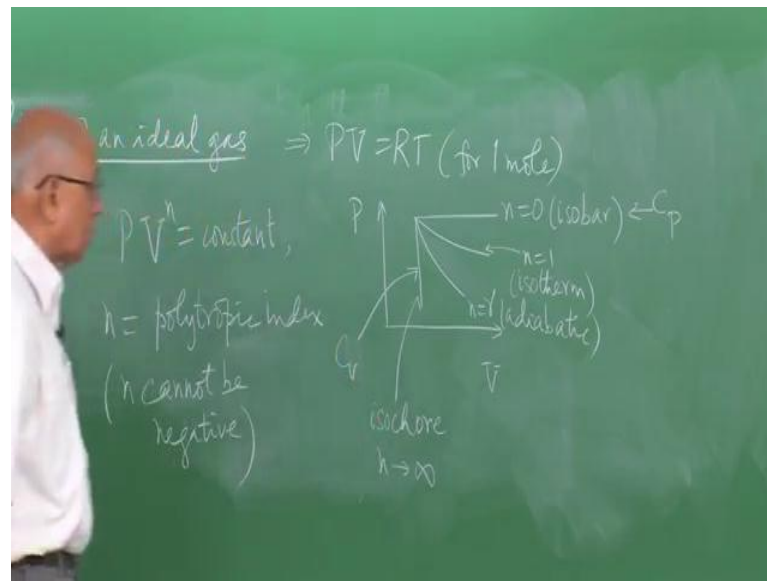 an ideal gas ⇒ PV = RT (for 1 mole)
PVⁿ = constant,
n = polytropic index
(n cannot be
negative)
P
n=0 (isobar) ← Cp
n=1
(isotherm)
n=γ (adiabatic)
Cv
V
isochore
n→∞